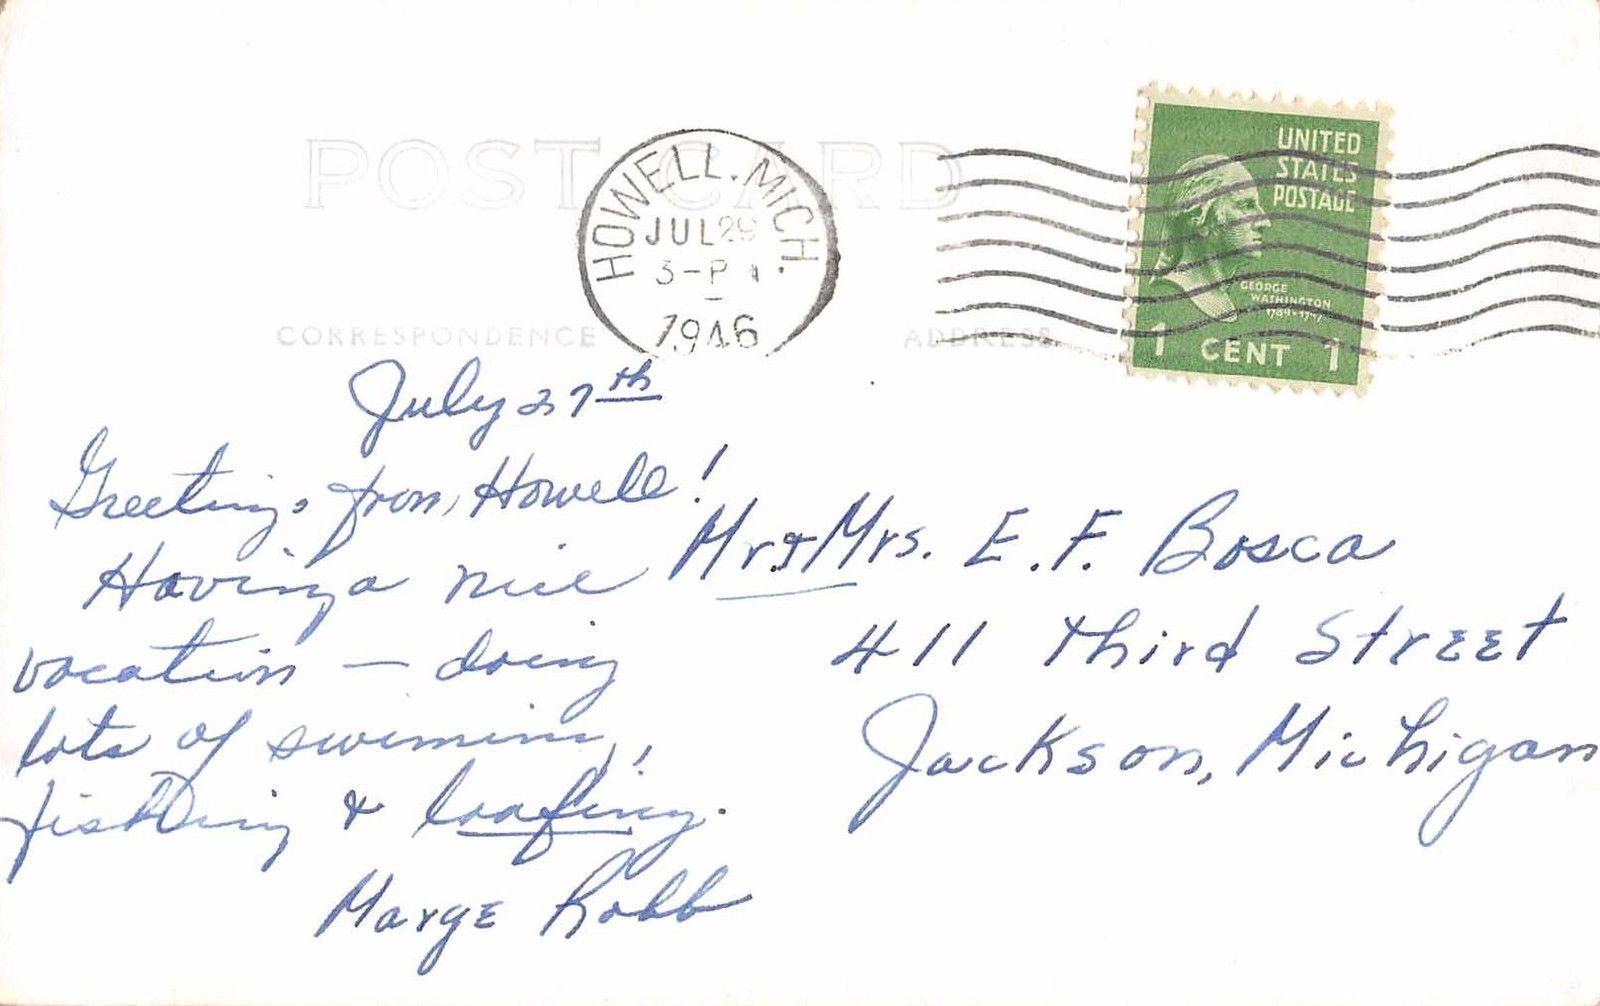 POST CARD
HOWELL. MICH.
JUL 29
3-P
1946
UNITED
STATES
POSTAGE
GEORGE
WASHINGTON
1789-1797
1 CENT 1
CORRESPONDENCE
ADDRESS
July 27th
Greetings from Howell!
Having a nice
vacation — doing
lots of swimming,
fishing & loafing.
Marge Robb
Mr & Mrs. E. F. Bosca
411 Third Street
Jackson, Michigan